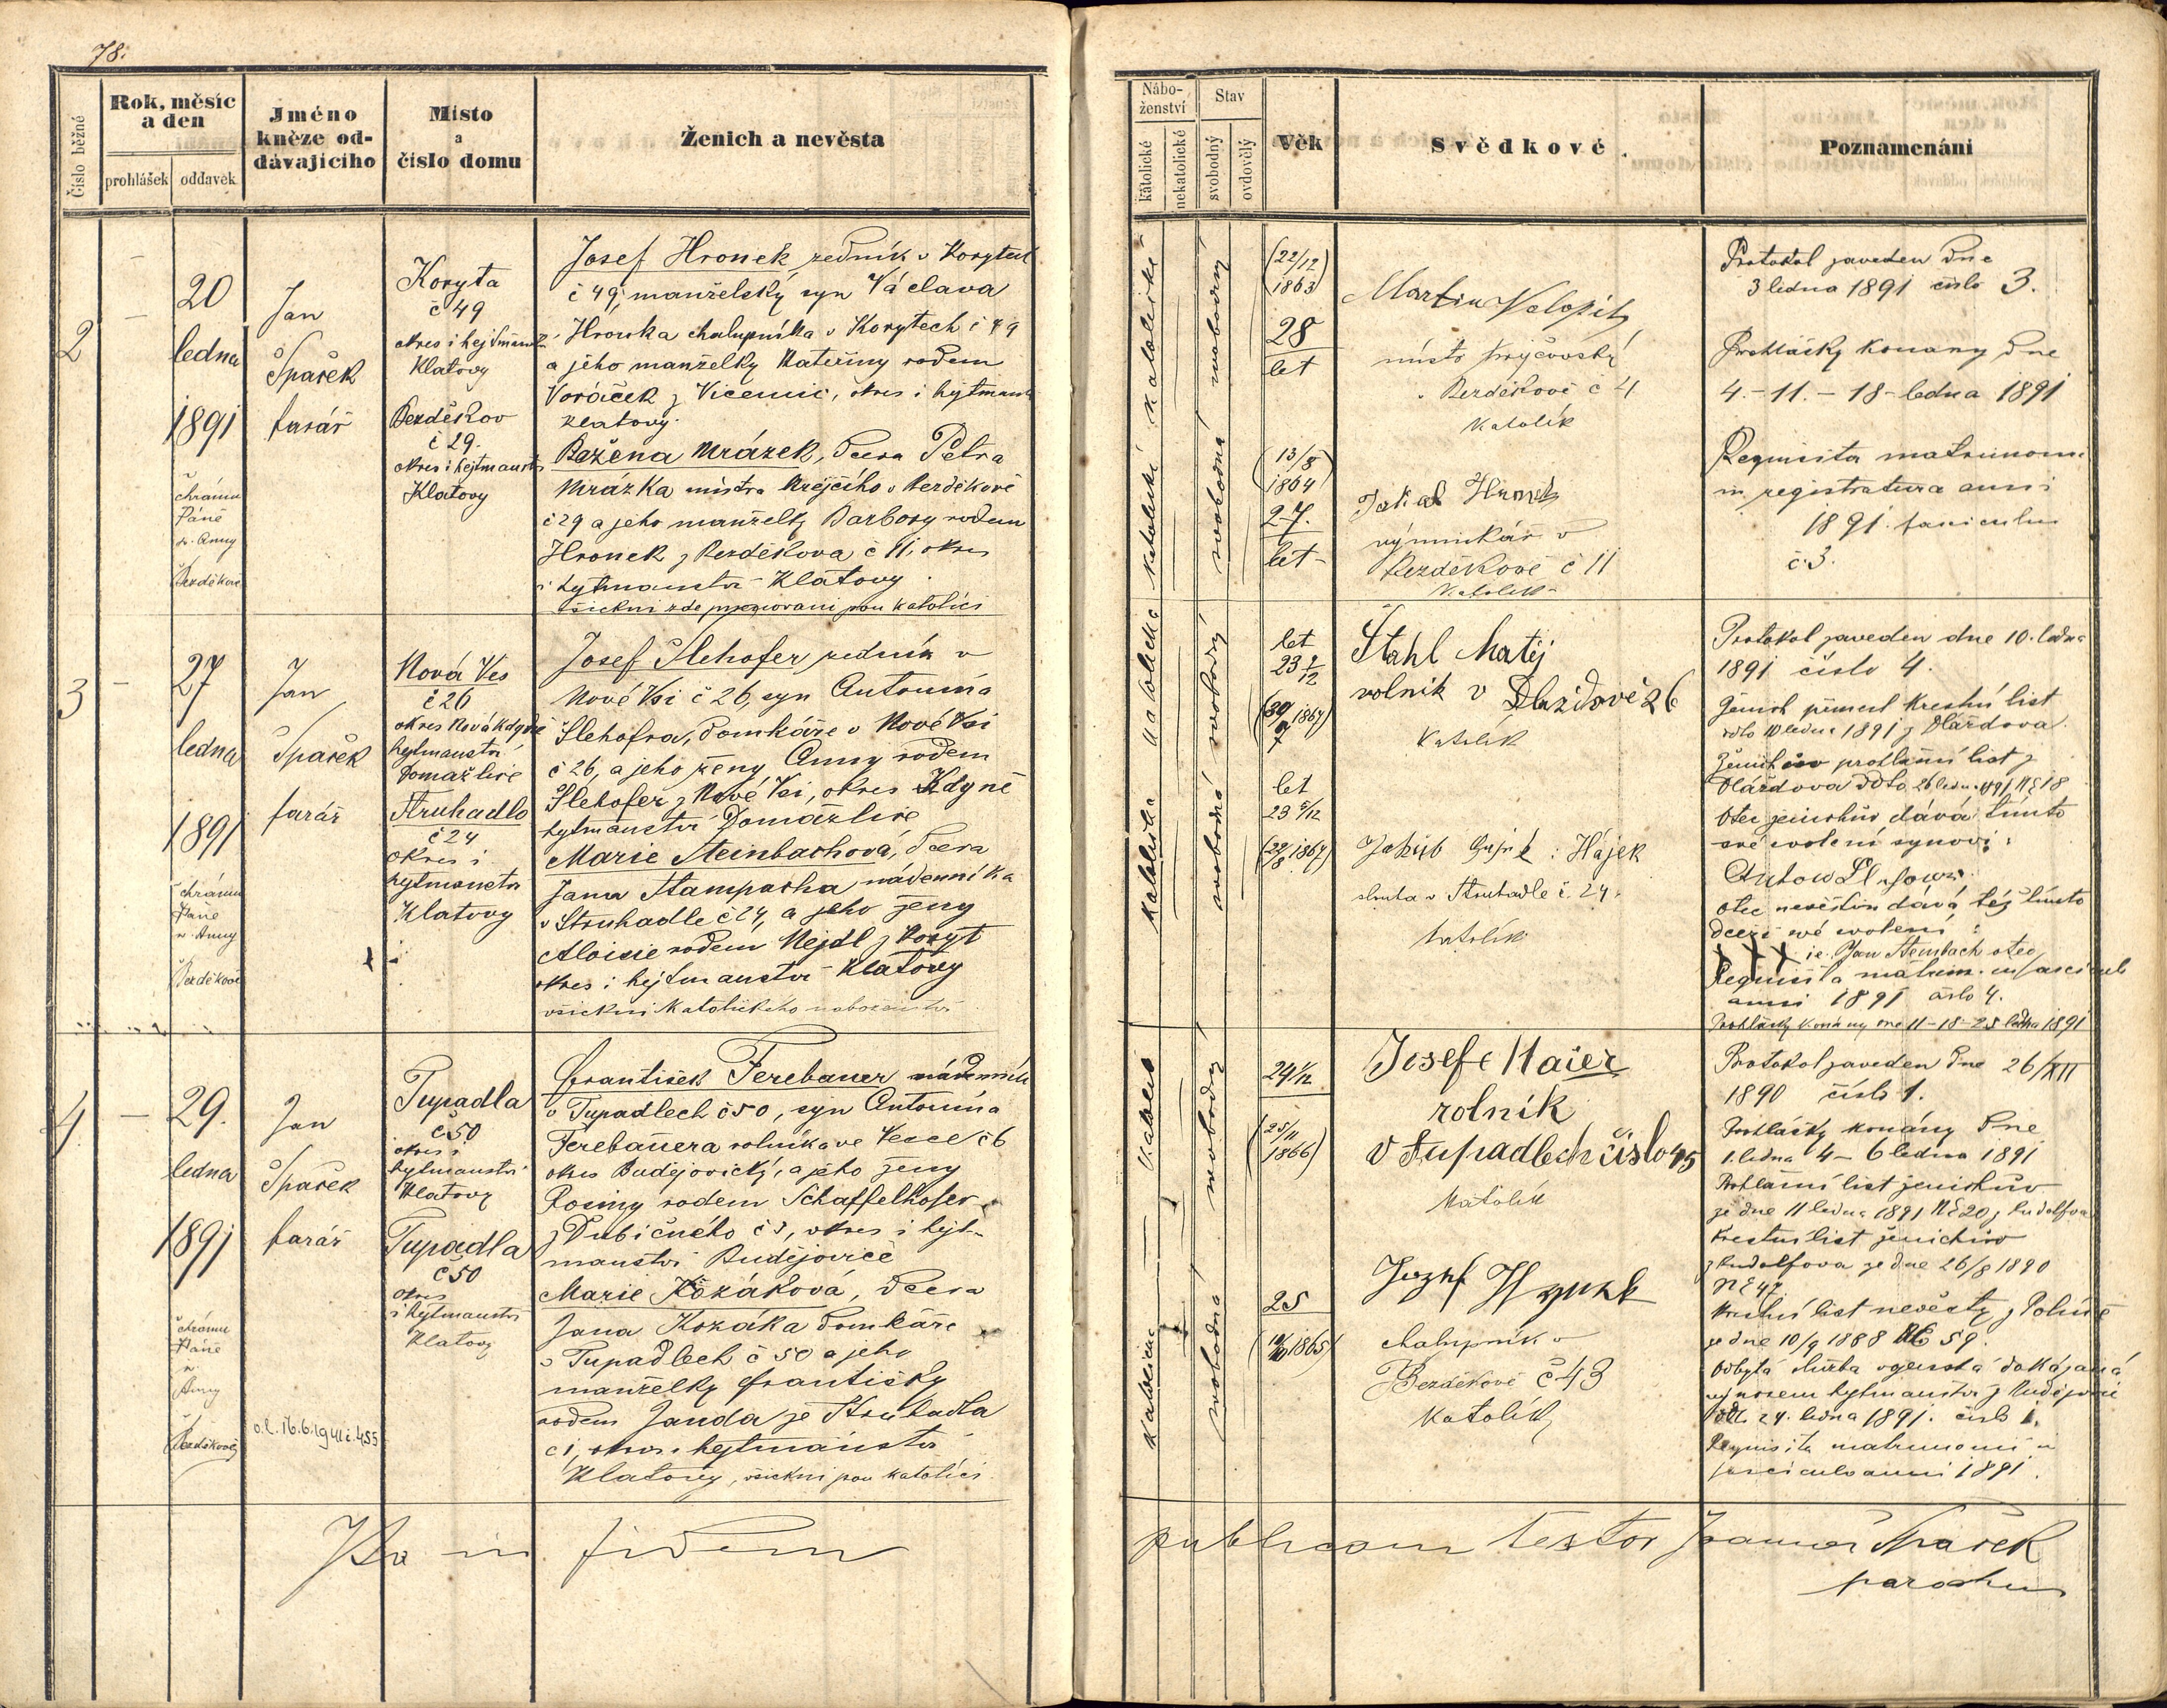 78.
Číslo běžné
Rok, měsíc
a den
prohlášek
oddavek
Jméno
kněze od-
dávajícího
Místo
a
číslo domu
Ženich a nevěsta
Nábo-
ženství
katolické
nekatolické
Stav
svobodný
ovdovělý
Věk
Svědkové.
Poznamenání
2
20
ledna
1891
chrámu
Páně
sv. Anny
Bezděkově
Jan
Špaček
farář
Koryta
č 49
okres i hejtmans
Klatovy
Bezděkov
č 29.
okres i hejtmanst
Klatovy
Josef Hronek, zedník v Korytech
č 49, manželský syn Václava
Hronka chalupníka v Korytech č 49
a jeho manželky Kateřiny rodem
Voráček z Vicenic, okres i hejtmanst
Klatovy.
Božena Mrázek, dcera Petra
Mrázka mistra krejčího v Bezděkově
č 29 a jeho manželky Barbory rodem
Hronek z Bezděkova č 11, okres
i hejtmanství Klatovy.
všickni zde jsou katolíci
katolické
svobodný
(22/12
1863)
28
let
katolické
svobodná
(13/8
1864
27.
let
Martin
mistr krejčovský
v Bezděkově č 4
Katolík
Jakub Hronek
výminkář v
Bezděkově č 11
Katolík
Protokol zaveden dne
3 ledna 1891 číslo 3.
Prohlášky konány dne
4.-11.-18-ledna 1891
Requisita matrimoni
in registratura anni
1891 fasciculus
č. 3.
3
27
ledna
1891
chrámu
Páně
sv. Anny
Bezděkově
Jan
Špaček
farář
Nová Ves
č 26
okres Nová Kdyně
hejtmanství
Domažlice
Struhadlo
č 24
okres i
hejtmanství
Klatovy
Josef Slehofer zedník v
Nové Vsi č 26, syn Antonína
Slehofra, domkáře v Nové Vsi
č 26, a jeho ženy Anny rodem
Slehofer z Nové Vsi, okres Kdyně
hejtmanství Domažlice
Marie Steinbachová, dcera
Jana nádenníka
v Struhadle č 24, a jeho ženy
Aloisie rodem Nejdl z Koryt
okres i hejtmanství Klatovy
všickni katolického náboženství
katolické
svobodný
let
23
(30/7 1867)
katolická
svobodná
let
23 5/12
(22/8 1867)
Štahl Matěj
rolník v 26
Katolík
Jakub : Hájek
sluha v Struhadle č. 24.
katolík
Protokol zaveden dne 10. ledna
1891 číslo 4.
Ženich přinesl křestní list
ddto 10 ledna 1891 z
Ženichův prohlášní list z
ddto 26 ledna 1891 NE 18
Otec ženichův dává tímto
své svolení synovi:
Otec nevěstin dává též tímto
dceři své svolení:
XXX ie. Jan Steinbach otec
Requisita matrim. in fascicul
anni 1891 číslo 4.
Prohlášky konány dne 11-18-25 ledna 1891
4.
29.
ledna
1891
chrámu
Páně
sv.
Anny
Bezděkově
Jan
Špaček
farář
o.č. 16.6.1941 č. 455
Tupadla
č 50
okres i
hejtmanství
Klatovy
Tupadla
č 50
okres
i hejtmanství
Klatovy
František Ferebauer nádenník
v Tupadlech č 50, syn Antonína
Ferebauera rolníka ve Vesce č 6
okres Budějovický, a jeho ženy
Rosiny rodem Schaffelhofer
z Dubičného č 3, okres i hejt-
manství Budějovice
Marie Kozáková, dcera
Jana Kozáka domkáře
v Tupadlech č 50 a jeho
manželky Františky
rodem Janda ze Struhadla
č 1, okres i hejtmanství
Klatovy, všickni jsou katolíci
svobodný
24 1/12
(25/11
1866)
svobodná
25
(10/10 1865)
Josef Maier
rolník
v Tupadlech číslo 45
Katolík
Jozef
chalupník v
Bezděkově č 43
Katolík
Protokol zaveden dne 26/XII
1890 číslo 1.
Prohlášky konány dne
1. ledna 4 - 6 ledna 1891
Prohlášní list ženichův
ze dne 11 ledna 1891 NE 20 z Rudolfova
Křestní list ženichův
z Rudolfova ze dne 26/8 1890
NE 47
Křestní list nevěsty z
ze dne 10/9 1888 59.
Odbytá služba vojenská dokázaná
výnosem hejtmanství z Budějovic
ddto. 24. ledna 1891. číslo 1.
Requisita matrimonii in
fasciculo anni 1891.
in fidem
publicam testor Joannes Špaček
parochus